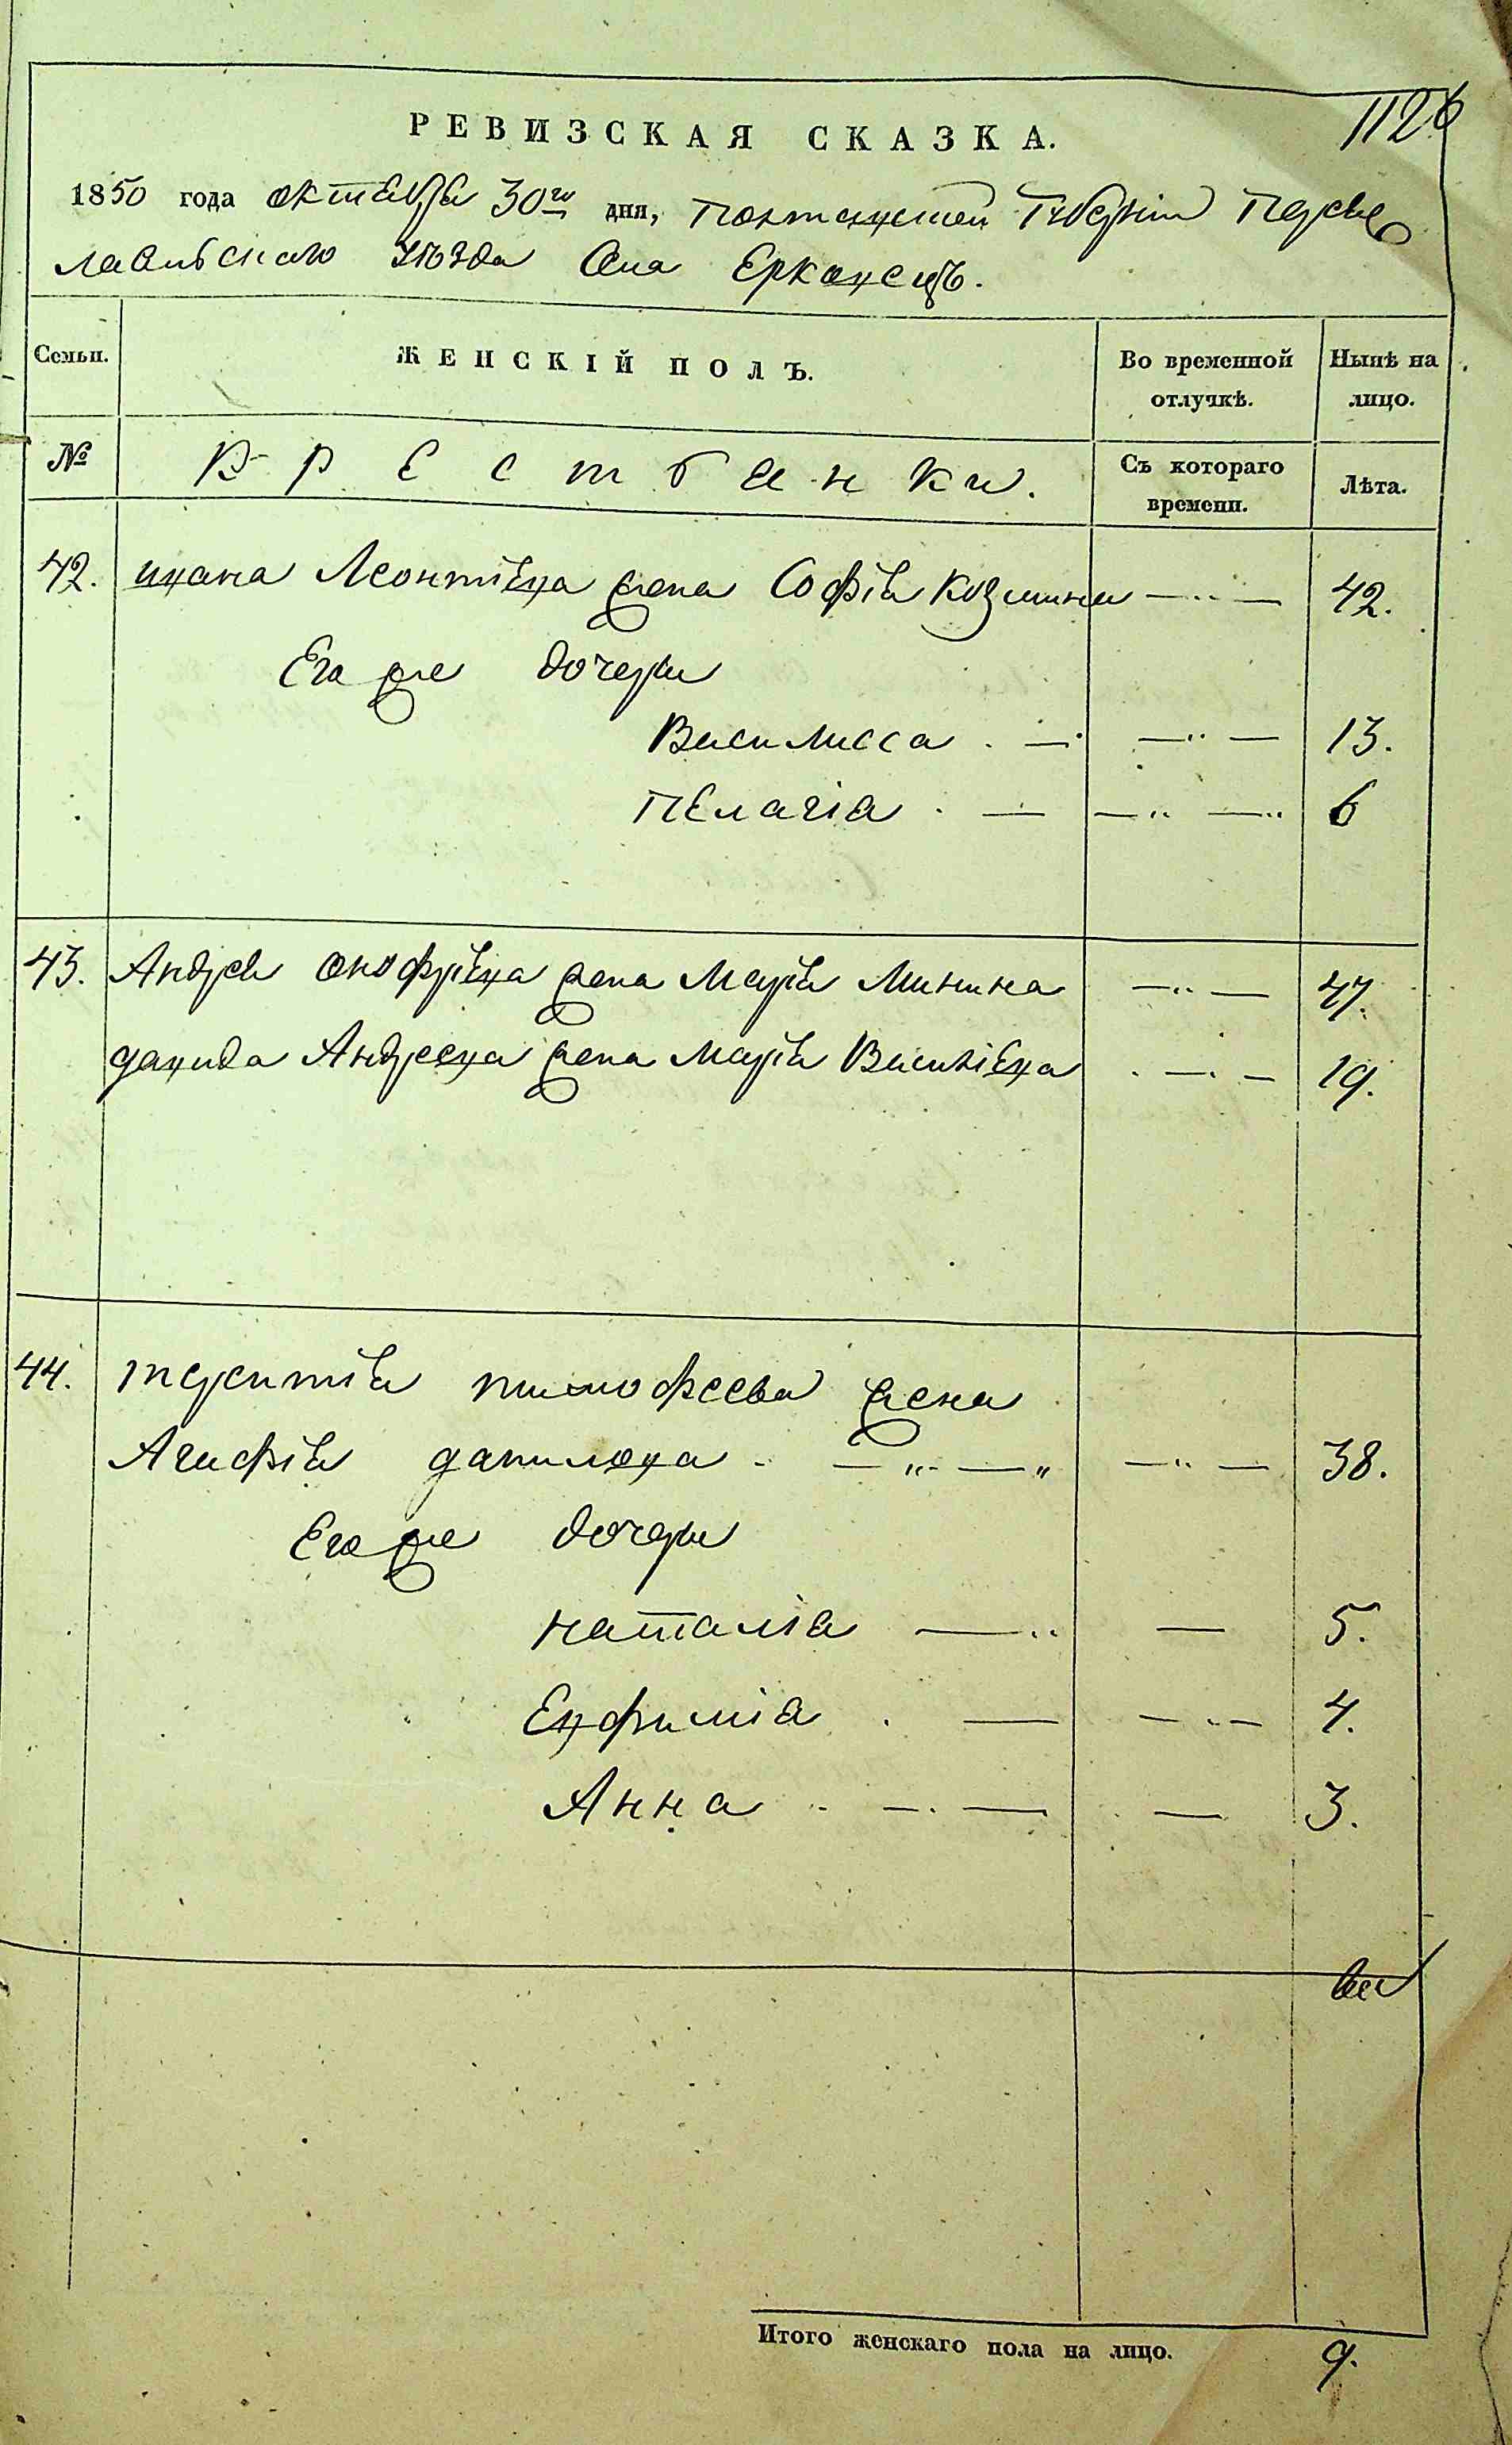 1126
РЕВИЗСКАЯ СКАЗКА.
1850 года октября 30го дня, Полтавской Губернiи Переяс
лавскаго уѣзда Села Ерковецъ.
Семьи. ЖЕНСКІЙ ПОЛЪ. Во временной отлучкѣ. Нынѣ на лицо.
№ Крестьянки. Съ котораго времени. Лѣта.
42. ивана Леонтіева жена Софія Козмина — 42.
Его же дочери
Василисса . — 13.
Пелагія . — 6
43. Андрея онофріева жена Марія Минина — 47.
давида Андреева жена Марія Василіева . — 19.
44. терентія тимофеева жена
Агафія данилова — 38.
Его же дочери
наталія — 5.
Евфимія . — 4.
Анна . — 3.
Итого женскаго пола на лицо. 9.